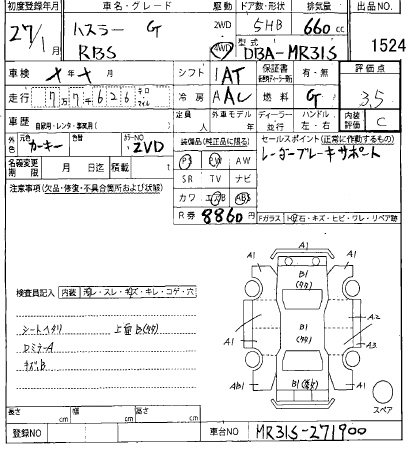 初度登録年月 車名・グレード 駆動 ドア数・形状 排気量 出品NO.
27/1月 ハスラー G 2WD 5HB 660cc
RBS 4WD 型式 DBA-MR31S 1524
車検 メ年メ月 シフト 1AT 保証書 有・無 評価点
走行 7万7千626 キロ マイル 冷房 AAC 燃料 G 3.5
車歴 自家用・レンタ・事業用( ) 定員 人 外車モデル 年 ディーラー 並行 ハンドル 左・右 内装評価 C
外色 元色 カーキー 色替 カラーNO ZVD 装備品(純正品に限る) セールスポイント(正常に作動するもの)
名義変更期限 月 日迄 積載 t PS PW AW レーダーブレーキサポート
注意事項(欠品・修復・不具合箇所および状態) SR TV ナビ
カワ エアB ABS
R券 8860円 Fガラス
検査員記入 内装 汚レ・スレ・キズ・キレ・コゲ・穴
シートヘタリ 上面B(タタ)
ロミラーA
キズ、B
A1
A1 B1 (タタ) A1
A1 A2
A1 A3
Ab1 B1 A1
A1
スペア
高さ cm 長さ cm 幅 cm
登録NO 車台NO MR31S-271900